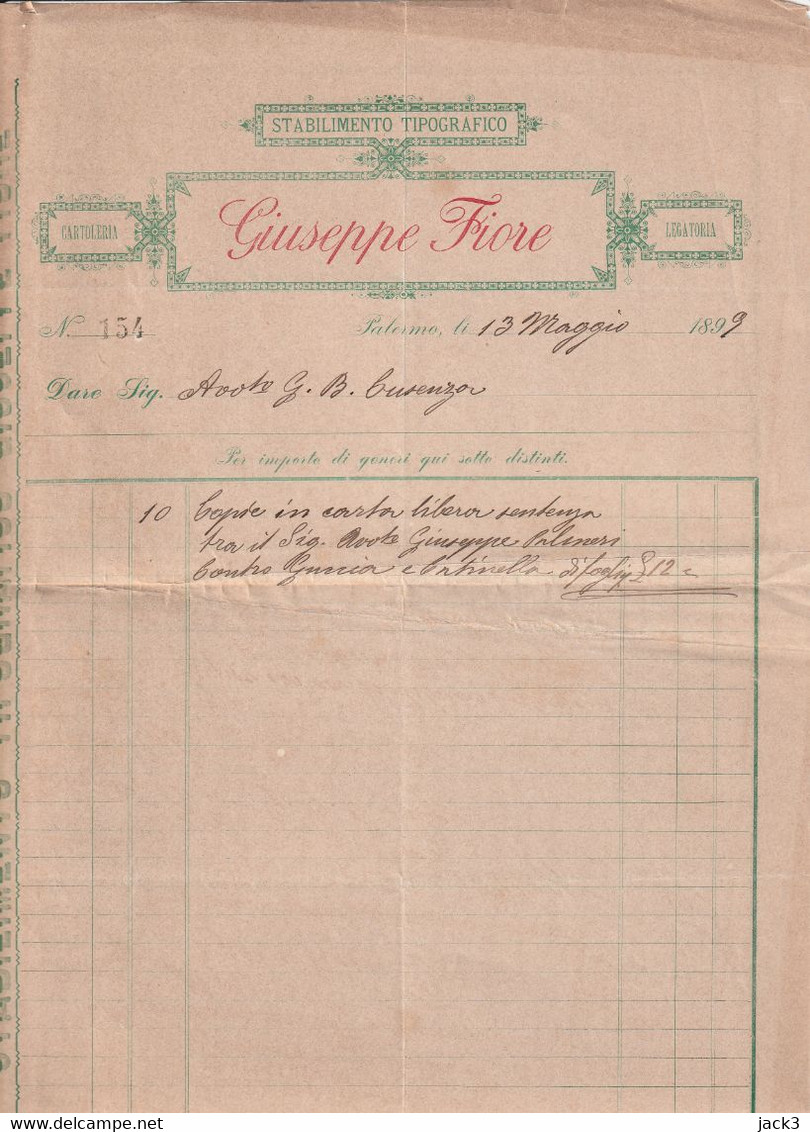 STABILIMENTO TIPOGRAFICO
CARTOLERIA
Giuseppe Fiore
LEGATORIA
N. 154
Palermo, li 13 Maggio 1899
Dare Sig. Avvto G. B. Cusenza
Per importo di generi qui sotto distinti.
10 Copie in carta libera sentenza
tra il Sig. Avvto Giuseppe Palmeri
Contro Guccia e di fogli 12
delcampe.net
jack3